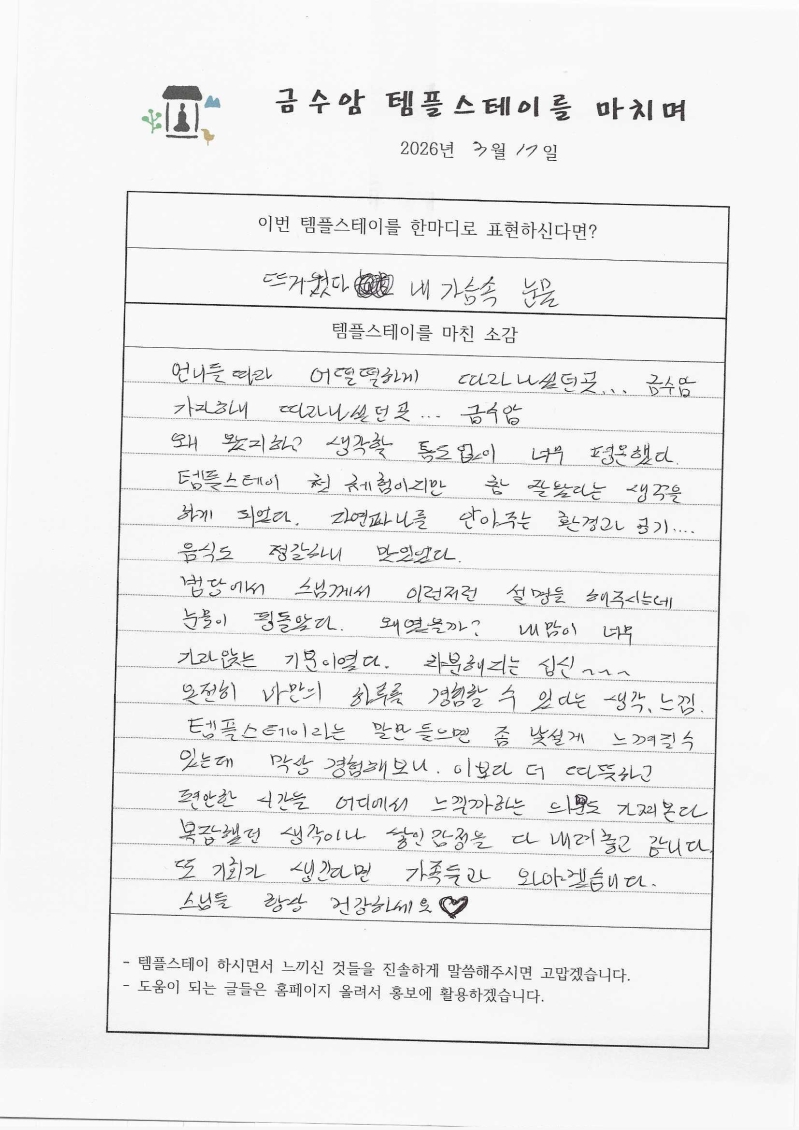 금수암 템플스테이를 마치며
2026년 3월 17일
이번 템플스테이를 한마디로 표현하신다면?
뜨거웠다 내 가슴속 눈물
템플스테이를 마친 소감
언니들 따라 어떨떨하게 따라나섰던곳... 금수암
따라나섰던곳... 금수암
왜 왔지하고 생각할 틈도없이 너무 평온했다.
템플스테이 첫 체험이지만 참 잘왔다는 생각을
하게 되었다. 자연파니를 안아주는 환경과 공기....
음식도 정갈하니 맛있었다.
법당에서 스님께서 이런저런 설명을 해주시는데
눈물이 핑돌았다. 왜였을까? 내맘이 너무
가라앉는 기분이였다. 차분해지는 심신~~~
온전히 나만의 하루를 경험할 수 있다는 생각, 느낌.
템플스테이라는 말만들으면 좀 낯설게 느껴질수
있는데 막상 경험해보니. 이보다 더 따뜻하고
편안한 시간을 어디에서 느낄까하는 의문도 가져본다
복잡했던 생각이나 쌓인감정을 다 내려놓고 갑니다.
또 기회가 생긴다면 가족들과 와야겠습니다.
스님들 항상 건강하세요
- 템플스테이 하시면서 느끼신 것들을 진솔하게 말씀해주시면 고맙겠습니다.
- 도움이 되는 글들은 홈페이지 올려서 홍보에 활용하겠습니다.